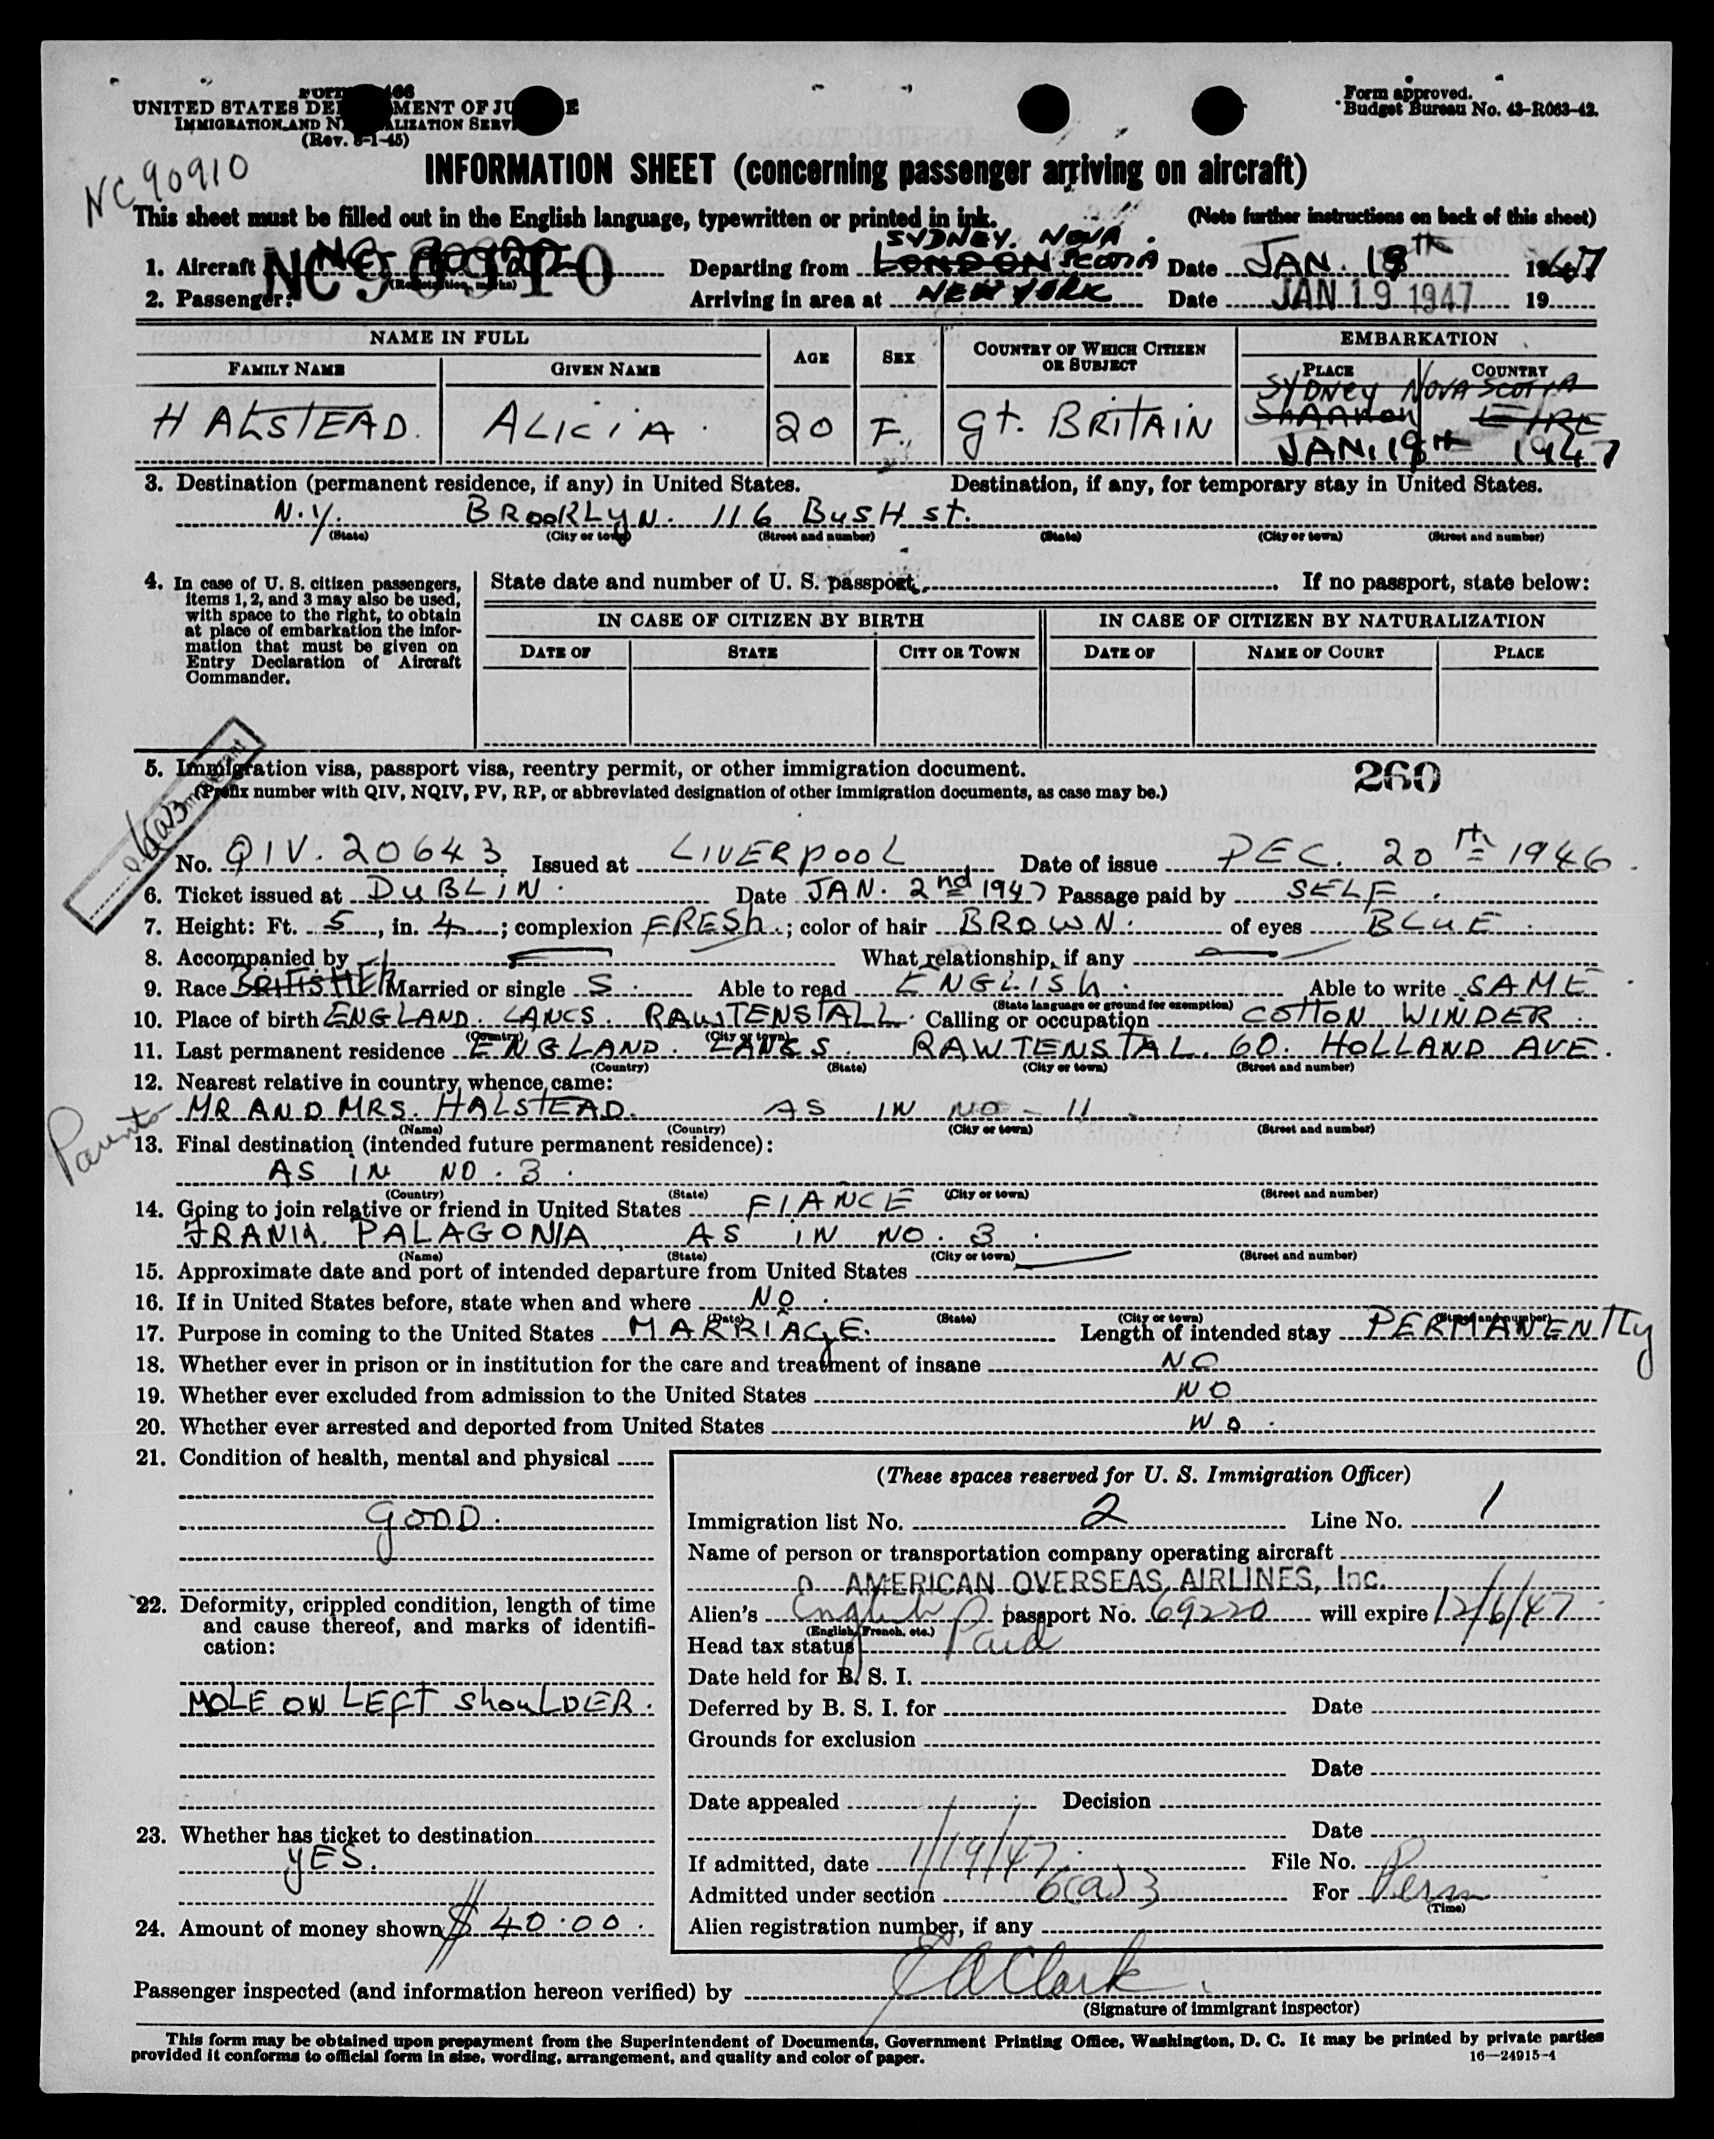 UNITED STATES DE MENT OF JU E
Form approved.
Budget Bureau No. 43-R063-42.
IMMIGRATION AND N ALIZATION SERV
(Rev. 8-1-45)
NC 90910
INFORMATION SHEET (concerning passenger arriving on aircraft)
This sheet must be filled out in the English language, typewritten or printed in ink. (Note further instructions on back of this sheet)
SYDNEY. NOVA.
1. Aircraft NC 90910 Departing from LONDON SCOTIA Date JAN. 18TH 1947
(Registration, marks)
2. Passenger: Arriving in area at NEW YORK Date JAN 19 1947 19
NAME IN FULL AGE SEX COUNTRY OF WHICH CITIZEN OR SUBJECT EMBARKATION
FAMILY NAME GIVEN NAME PLACE COUNTRY
SYDNEY NOVA SCOTIA
HALSTEAD. ALICIA. 20 F. Gt. BRITAIN SHANNON EIRE
JAN. 18TH 1947
3. Destination (permanent residence, if any) in United States. Destination, if any, for temporary stay in United States.
N.Y. BROOKLYN. 116 BUSH St.
(State) (City or town) (Street and number) (State) (City or town) (Street and number)
4. In case of U. S. citizen passengers, items 1, 2, and 3 may also be used, with space to the right, to obtain at place of embarkation the information that must be given on Entry Declaration of Aircraft Commander.
State date and number of U. S. passport If no passport, state below:
IN CASE OF CITIZEN BY BIRTH IN CASE OF CITIZEN BY NATURALIZATION
DATE OF STATE CITY OR TOWN DATE OF NAME OF COURT PLACE
5. Immigration visa, passport visa, reentry permit, or other immigration document. 260
(Prefix number with QIV, NQIV, PV, RP, or abbreviated designation of other immigration documents, as case may be.)
No. QIV. 20643 Issued at LIVERPOOL Date of issue DEC. 20TH 1946.
6. Ticket issued at DUBLIN. Date JAN. 2nd 1947 Passage paid by SELF.
7. Height: Ft. 5, in. 4; complexion FRESh.; color of hair BROWN. of eyes BLUE.
8. Accompanied by What relationship, if any
9. Race BRITISH Married or single S. Able to read ENGLISh. Able to write SAME
(State language or ground for exemption)
10. Place of birth ENGLAND. LANCS. RAWTENSTALL. Calling or occupation COTTON WINDER.
(Country) (City or town)
11. Last permanent residence ENGLAND. LANCS. RAWTENSTAL. 60. HOLLAND AVE.
(Country) (State) (City or town) (Street and number)
12. Nearest relative in country whence came:
Parents MR AND MRS. HALSTEAD. AS IN NO - 11.
(Name) (Country) (City or town) (Street and number)
13. Final destination (intended future permanent residence):
AS IN NO. 3.
(Country) (State) (City or town) (Street and number)
14. Going to join relative or friend in United States FIANCE
PALAGONIA AS IN NO. 3.
(Name) (State) (City or town) (Street and number)
15. Approximate date and port of intended departure from United States
16. If in United States before, state when and where NO.
(Date) (State) (City or town) (Street and number)
17. Purpose in coming to the United States MARRIAGE. Length of intended stay PERMANENTLy
18. Whether ever in prison or in institution for the care and treatment of insane NO
19. Whether ever excluded from admission to the United States NO
20. Whether ever arrested and deported from United States NO.
21. Condition of health, mental and physical
GOOD.
22. Deformity, crippled condition, length of time and cause thereof, and marks of identification:
MOLE ON LEFT ShouLDER.
23. Whether has ticket to destination
YES.
24. Amount of money shown $ 40.00.
(These spaces reserved for U. S. Immigration Officer)
Immigration list No. 2 Line No. 1
Name of person or transportation company operating aircraft
AMERICAN OVERSEAS AIRLINES, Inc.
Alien's English passport No. 69220 will expire 12/6/47
(English, French, etc.)
Head tax status Paid
Date held for B. S. I.
Deferred by B. S. I. for Date
Grounds for exclusion
Date
Date appealed Decision
Date
If admitted, date 1/19/47 File No.
Admitted under section 6(a)3 For Perm
(Time)
Alien registration number, if any
Passenger inspected (and information hereon verified) by E A Clark
(Signature of immigrant inspector)
This form may be obtained upon prepayment from the Superintendent of Documents, Government Printing Office, Washington, D. C. It may be printed by private parties
provided it conforms to official form in size, wording, arrangement, and quality and color of paper.
16—24915-4